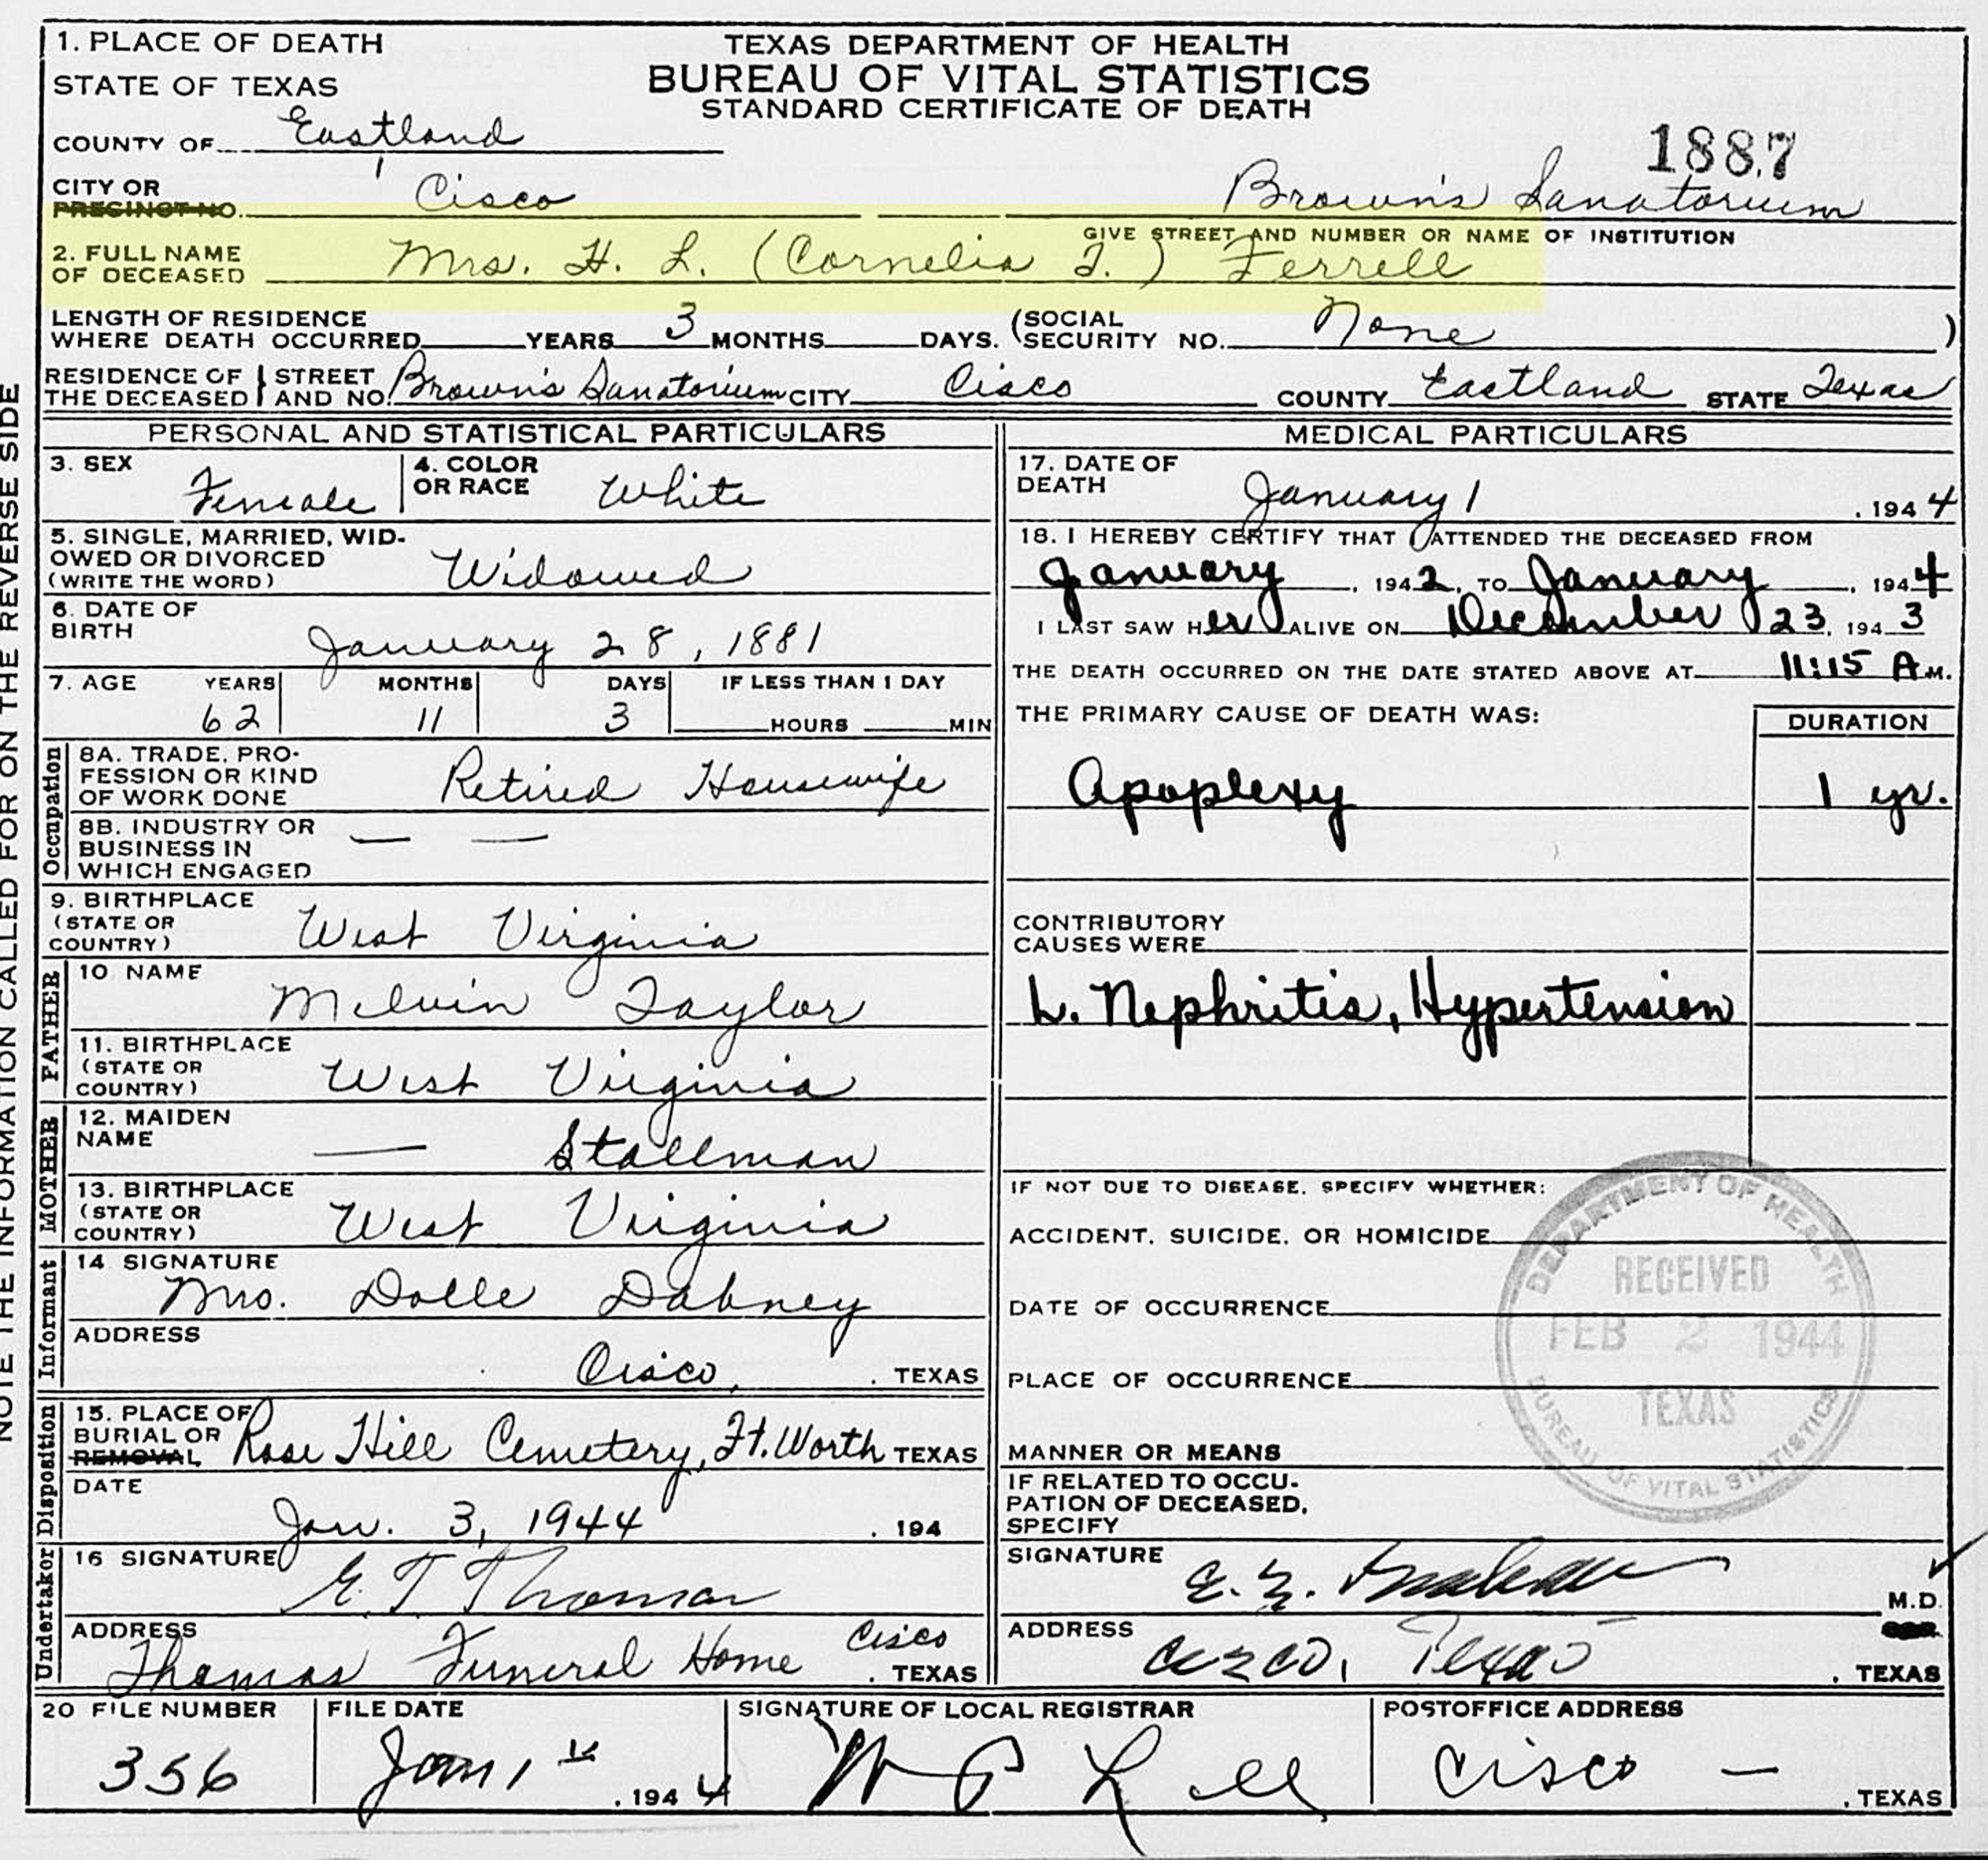 1. PLACE OF DEATH
STATE OF TEXAS
TEXAS DEPARTMENT OF HEALTH
BUREAU OF VITAL STATISTICS
STANDARD CERTIFICATE OF DEATH
COUNTY OF Eastland
1887
CITY OR PRECINCT NO. Cisco Brown's Sanatorium
GIVE STREET AND NUMBER OR NAME OF INSTITUTION
2. FULL NAME OF DECEASED Mrs. H. L. (Cornelia T.) Ferrell
LENGTH OF RESIDENCE WHERE DEATH OCCURRED YEARS 3 MONTHS DAYS. (SOCIAL SECURITY NO. None )
RESIDENCE OF THE DECEASED } STREET AND NO. Brown's Sanatorium CITY Cisco COUNTY Eastland STATE Texas
PERSONAL AND STATISTICAL PARTICULARS
3. SEX Female 4. COLOR OR RACE White
5. SINGLE, MARRIED, WIDOWED OR DIVORCED (WRITE THE WORD) Widowed
6. DATE OF BIRTH January 28, 1881
7. AGE YEARS MONTHS DAYS IF LESS THAN 1 DAY
62 11 3 HOURS MIN
Occupation
8A. TRADE, PRO-
FESSION OR KIND
OF WORK DONE Retired Housewife
8B. INDUSTRY OR
BUSINESS IN
WHICH ENGAGED — —
9. BIRTHPLACE
(STATE OR
COUNTRY) West Virginia
FATHER
10. NAME Melvin Taylor
11. BIRTHPLACE
(STATE OR
COUNTRY) West Virginia
MOTHER
12. MAIDEN
NAME — Stallman
13. BIRTHPLACE
(STATE OR
COUNTRY) West Virginia
Informant
14 SIGNATURE
Mrs. Dolle Dabney
ADDRESS
Cisco, . TEXAS
Disposition
15. PLACE OF
BURIAL OR
REMOVAL Rose Hill Cemetery, Ft. Worth TEXAS
DATE
Jan. 3, 1944 . 194
Undertaker
16 SIGNATURE E. T Thomas
ADDRESS Cisco
Thomas Funeral Home . TEXAS
MEDICAL PARTICULARS
17. DATE OF
DEATH January 1 , 1944
18. I HEREBY CERTIFY THAT I ATTENDED THE DECEASED FROM
January , 1942, TO January , 1944
I LAST SAW HER ALIVE ON December 23, 1943
THE DEATH OCCURRED ON THE DATE STATED ABOVE AT 11:15 A M.
THE PRIMARY CAUSE OF DEATH WAS: DURATION
Apoplexy 1 yr.
CONTRIBUTORY
CAUSES WERE
Nephritis, Hypertension
IF NOT DUE TO DISEASE, SPECIFY WHETHER:
ACCIDENT, SUICIDE, OR HOMICIDE
DATE OF OCCURRENCE
PLACE OF OCCURRENCE
MANNER OR MEANS
IF RELATED TO OCCU-
PATION OF DECEASED,
SPECIFY
DEPARTMENT OF HEALTH
RECEIVED
FEB 2 1944
TEXAS
BUREAU OF VITAL STATISTICS
SIGNATURE
M.D.
ADDRESS Cisco, Texas . TEXAS
20 FILE NUMBER FILE DATE SIGNATURE OF LOCAL REGISTRAR POSTOFFICE ADDRESS
356 Jan 1 . 1944 Cisco — . TEXAS
NOTE THE INFORMATION CALLED FOR ON THE REVERSE SIDE